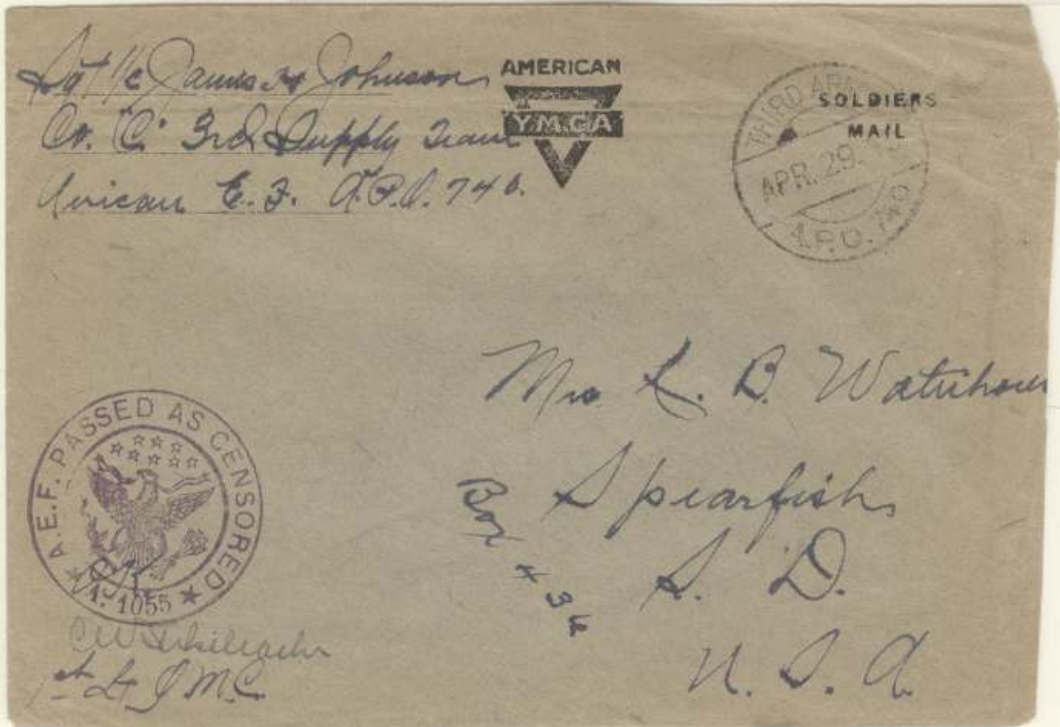 Sgt 1/c James H Johnson
Co. "C" 3rd Supply Train
American E. F. A.P.O. 740.
AMERICAN
Y.M.C.A
THIRD ARMY
APR. 29.
A.P.O. 740
SOLDIERS
MAIL
Mrs L. B. Waterhouse
Spearfish
Box 434
S. D.
U. S. A
A.E.F. PASSED AS CENSORED
OK
A. 1055
C W
1st Lt Q M C